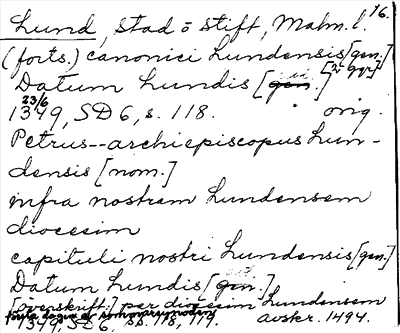 Lund, stad o stift, Malm. l. 16.
(forts.) canonici Lundensis [gen.]
[2 ggr]
Datum Lundis [gen.]
23/6
1349, SD 6, s. 118. orig.
Petrus--archiepiscopus Lun-
densis [nom.]
infra nostram Lundensem
diocesim
capituli nostri Lundensis [gen.]
Datum Lundis [gen.]
[överskrift:] per diocesim Lundensem
1349 SD 6, ss. 118, 119. avskr. 1494.